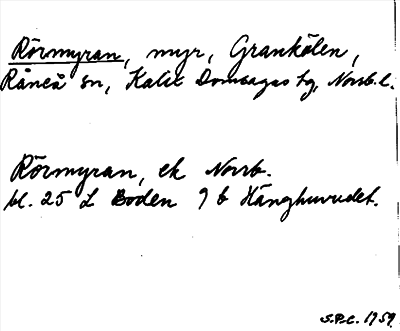 Rörmyran, myr, Grankölen,
Råneå sn, Kalix Domsagas hg, Norrb. l.
Rörmyran, ek Norrb.
bl. 25 L Boden 9 b Hänghuvudet.
S.P.C. 1959